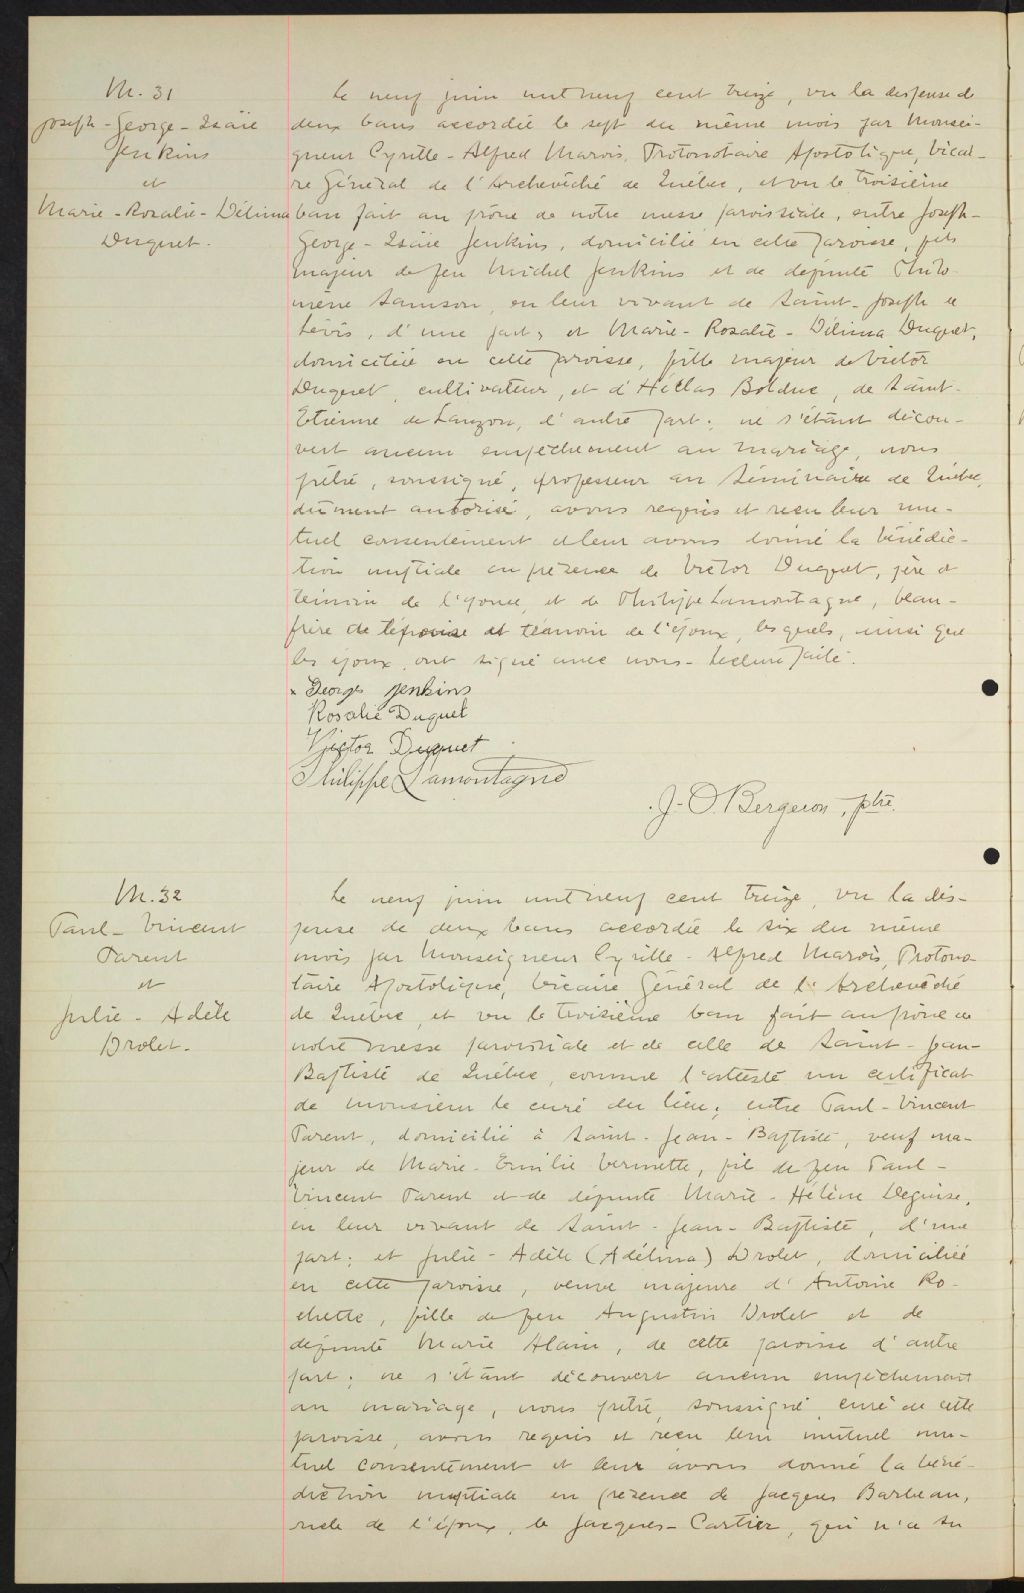 M. 31
Joseph-George-Isaïe
Jenkins
et
Marie-Rosalie-Délima
Duquet.
Le neuf juin mil neuf cent treize, vu la dispense de
deux bans accordée le sept du même mois par Monsei-
gneur Cyrille-Alfred Marois, Protonotaire Apostolique, Vicai-
re Général de l'Archevêché de Québec, et vu le troisième
ban fait au prône de notre messe paroissiale, entre Joseph-
George-Isaïe Jenkins, domicilié en cette paroisse, fils
majeur de feu Michel Jenkins et de défunte Philo-
mène Samson, en leur vivant de Saint-Joseph de
Lévis, d'une part; et Marie-Rosalie-Délima Duquet,
domiciliée en cette paroisse, fille majeur de Victor
Duquet, cultivateur, et d' Bolduc, de Saint-
Etienne de Lauzon, d'autre part; ne s'étant décou-
vert aucun empêchement au mariage, nous
prêtre, soussigné, professeur au Séminaire de Québec,
dûment autorisé, avons requis et reçu leur mu-
tuel consentement et leur avons donné la bénédic-
tion nuptiale en présence de Victor Duquet, père et
témoin de l'épouse, et de Philippe Lamontagne, beau-
frère de l'épouse et témoin de l'époux, lesquels, ainsi que
les époux, ont signé avec nous. Lecture faite.
x Georges Jenkins
Rosalie Duquet
Victor Duquet
Philippe Lamontagne
J-O. Bergeron, ptre.
M. 32
Paul-Vincent
Parent
et
Julie-Adèle
Drolet.
Le neuf juin mil neuf cent treize, vu la dis-
pense de deux bans accordée le six du même
mois par Monseigneur Cyrille-Alfred Marois, Protono-
taire Apostolique, Vicaire Général de l'Archevêché
de Québec, et vu le troisième ban fait au prône de
notre messe paroissiale et de celle de Saint-Jean-
Baptiste de Québec, comme l'atteste un certificat
de monsieur le curé du lieu; entre Paul-Vincent
Parent, domicilié à Saint-Jean-Baptiste, veuf ma-
jeur de Marie-Emilie Vermette, fil de feu Paul-
Vincent Parent et de défunte Marie-Hélène Deguise,
en leur vivant de Saint-Jean-Baptiste, d'une
part; et Julie-Adèle (Adélina) Drolet, domiciliée
en cette paroisse, veuve majeure d'Antoine Ro-
chette, fille de feu Augustin Drolet et de
défunte Marie Alain, de cette paroisse d'autre
part; ne s'étant découvert aucun empêchement
au mariage, nous prêtre, soussigné, curé de cette
paroisse, avons requis et reçu leur mutuel mu-
tuel consentement et leur avons donné la béné-
diction nuptiale en présence de Jacques Barbeau,
oncle de l'époux, de Jacques-Cartier, qui n'a su